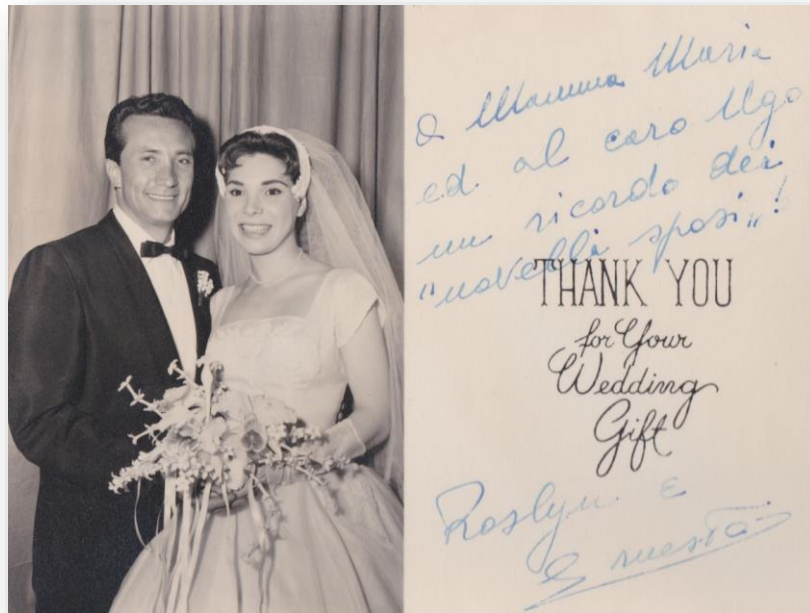 A Mamma Maria
ed al caro Ugo
un ricordo dei
"novelli sposi"!
THANK YOU
for Your
Wedding
Gift
Roslyn e
Ernesto